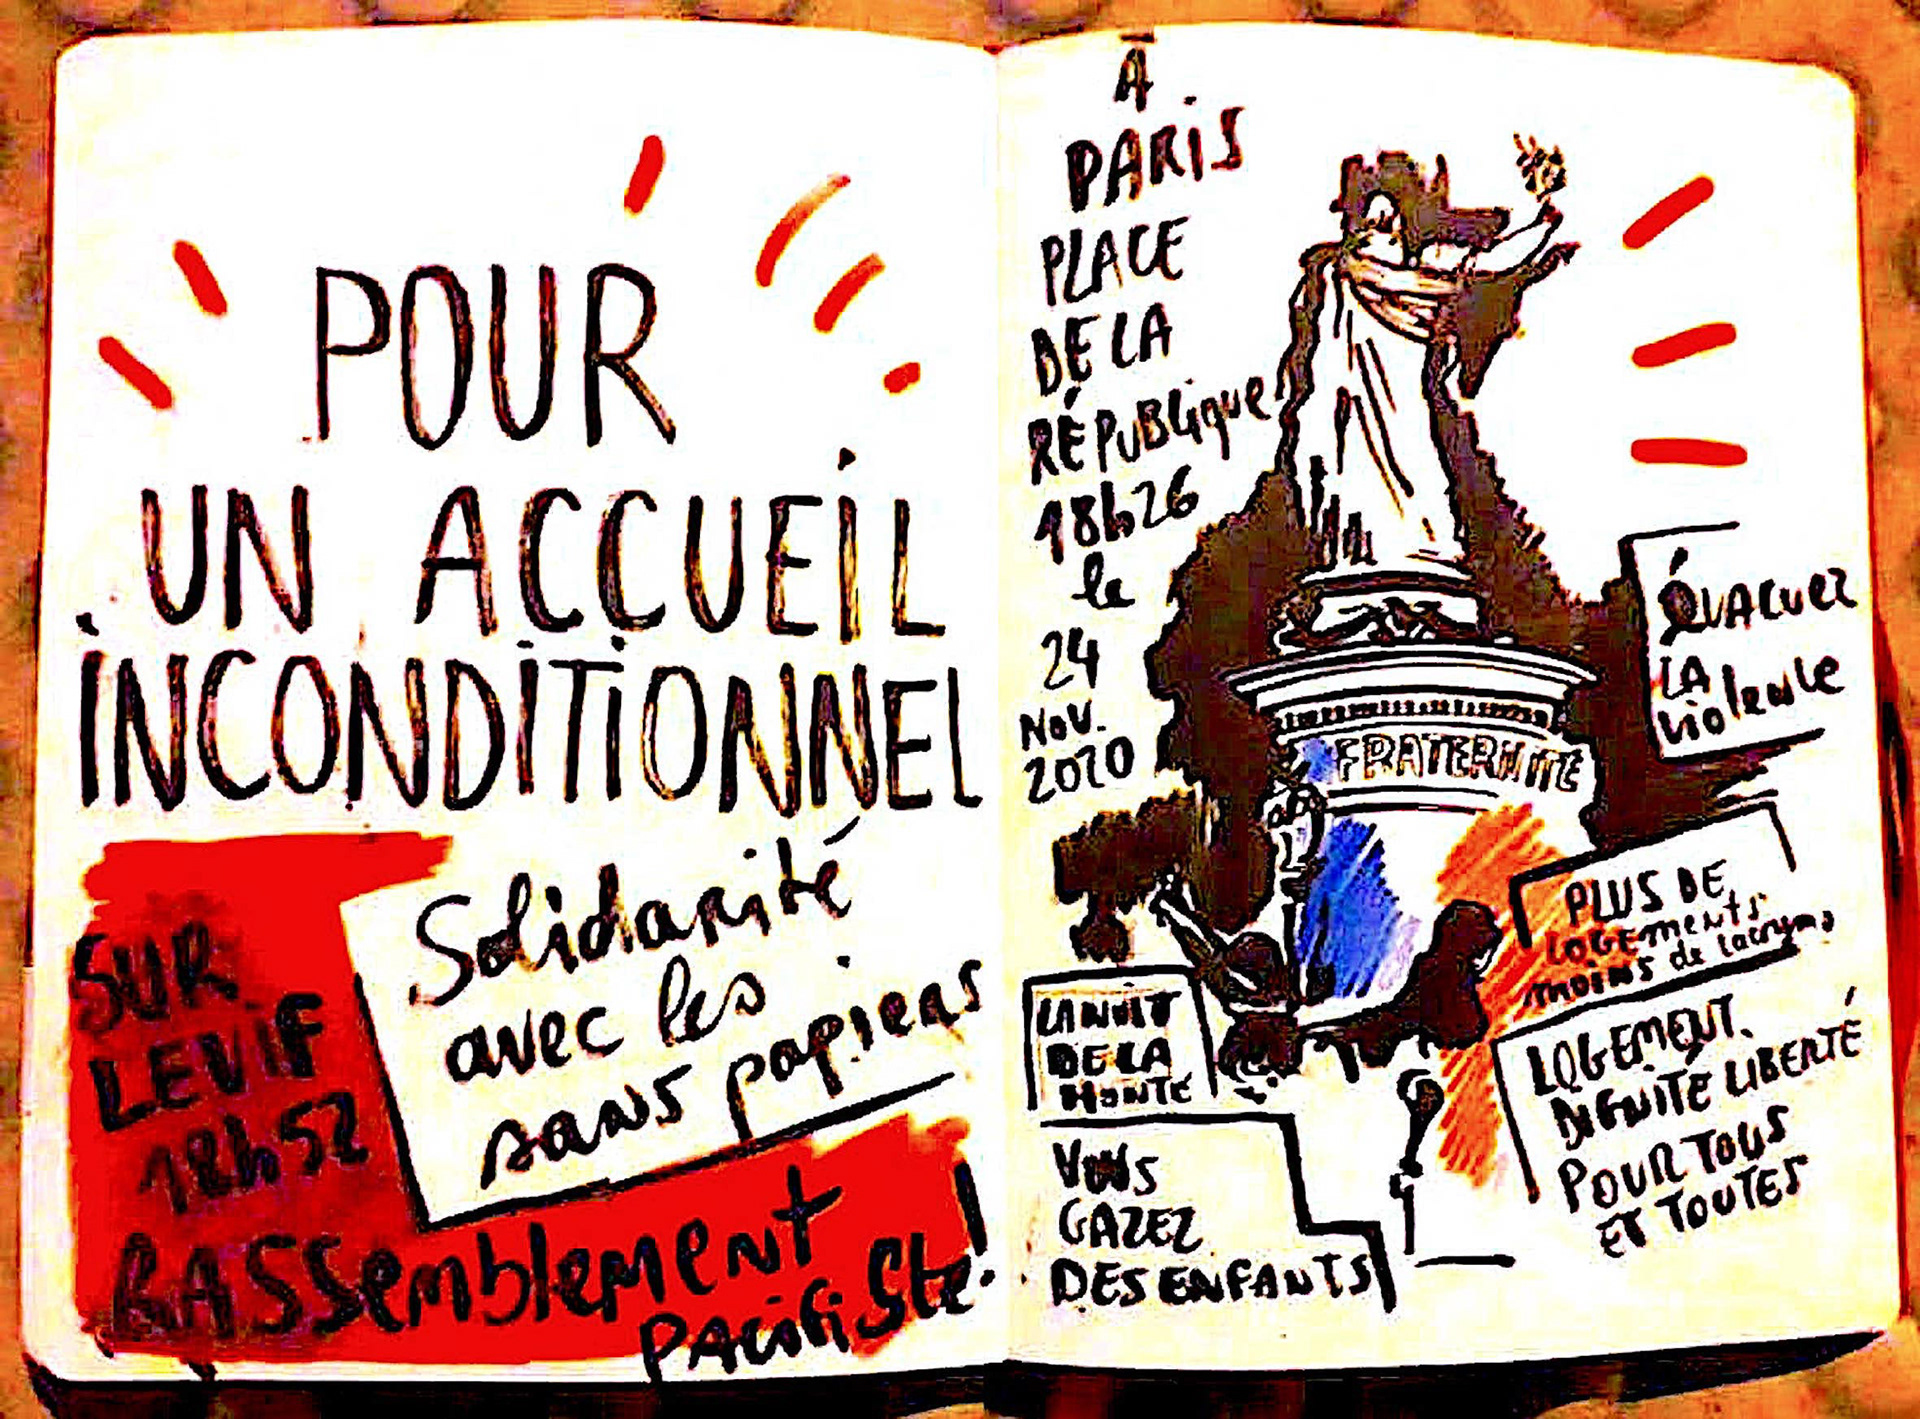 POUR
UN ACCUEIL
INCONDITIONNEL
Solidarité
avec les
sans papiers
SUR
LEVIF
18h52
RASSemblement
PACifiSte!
À
PARIS
PLACE
DE LA
RÉPUBLique
18h26
le
24
NOV.
2020
FRATERNITÉ
ÉVACUEZ
LA
violence
PLUS DE
LOGements
moins de lacrymo
LOGEMENT
DIGNITÉ LIBERTÉ
POUR TOUS
ET TOUTES
LA NUIT
DE LA
HONTE
VOUS
GAZEZ
DES ENFANTS